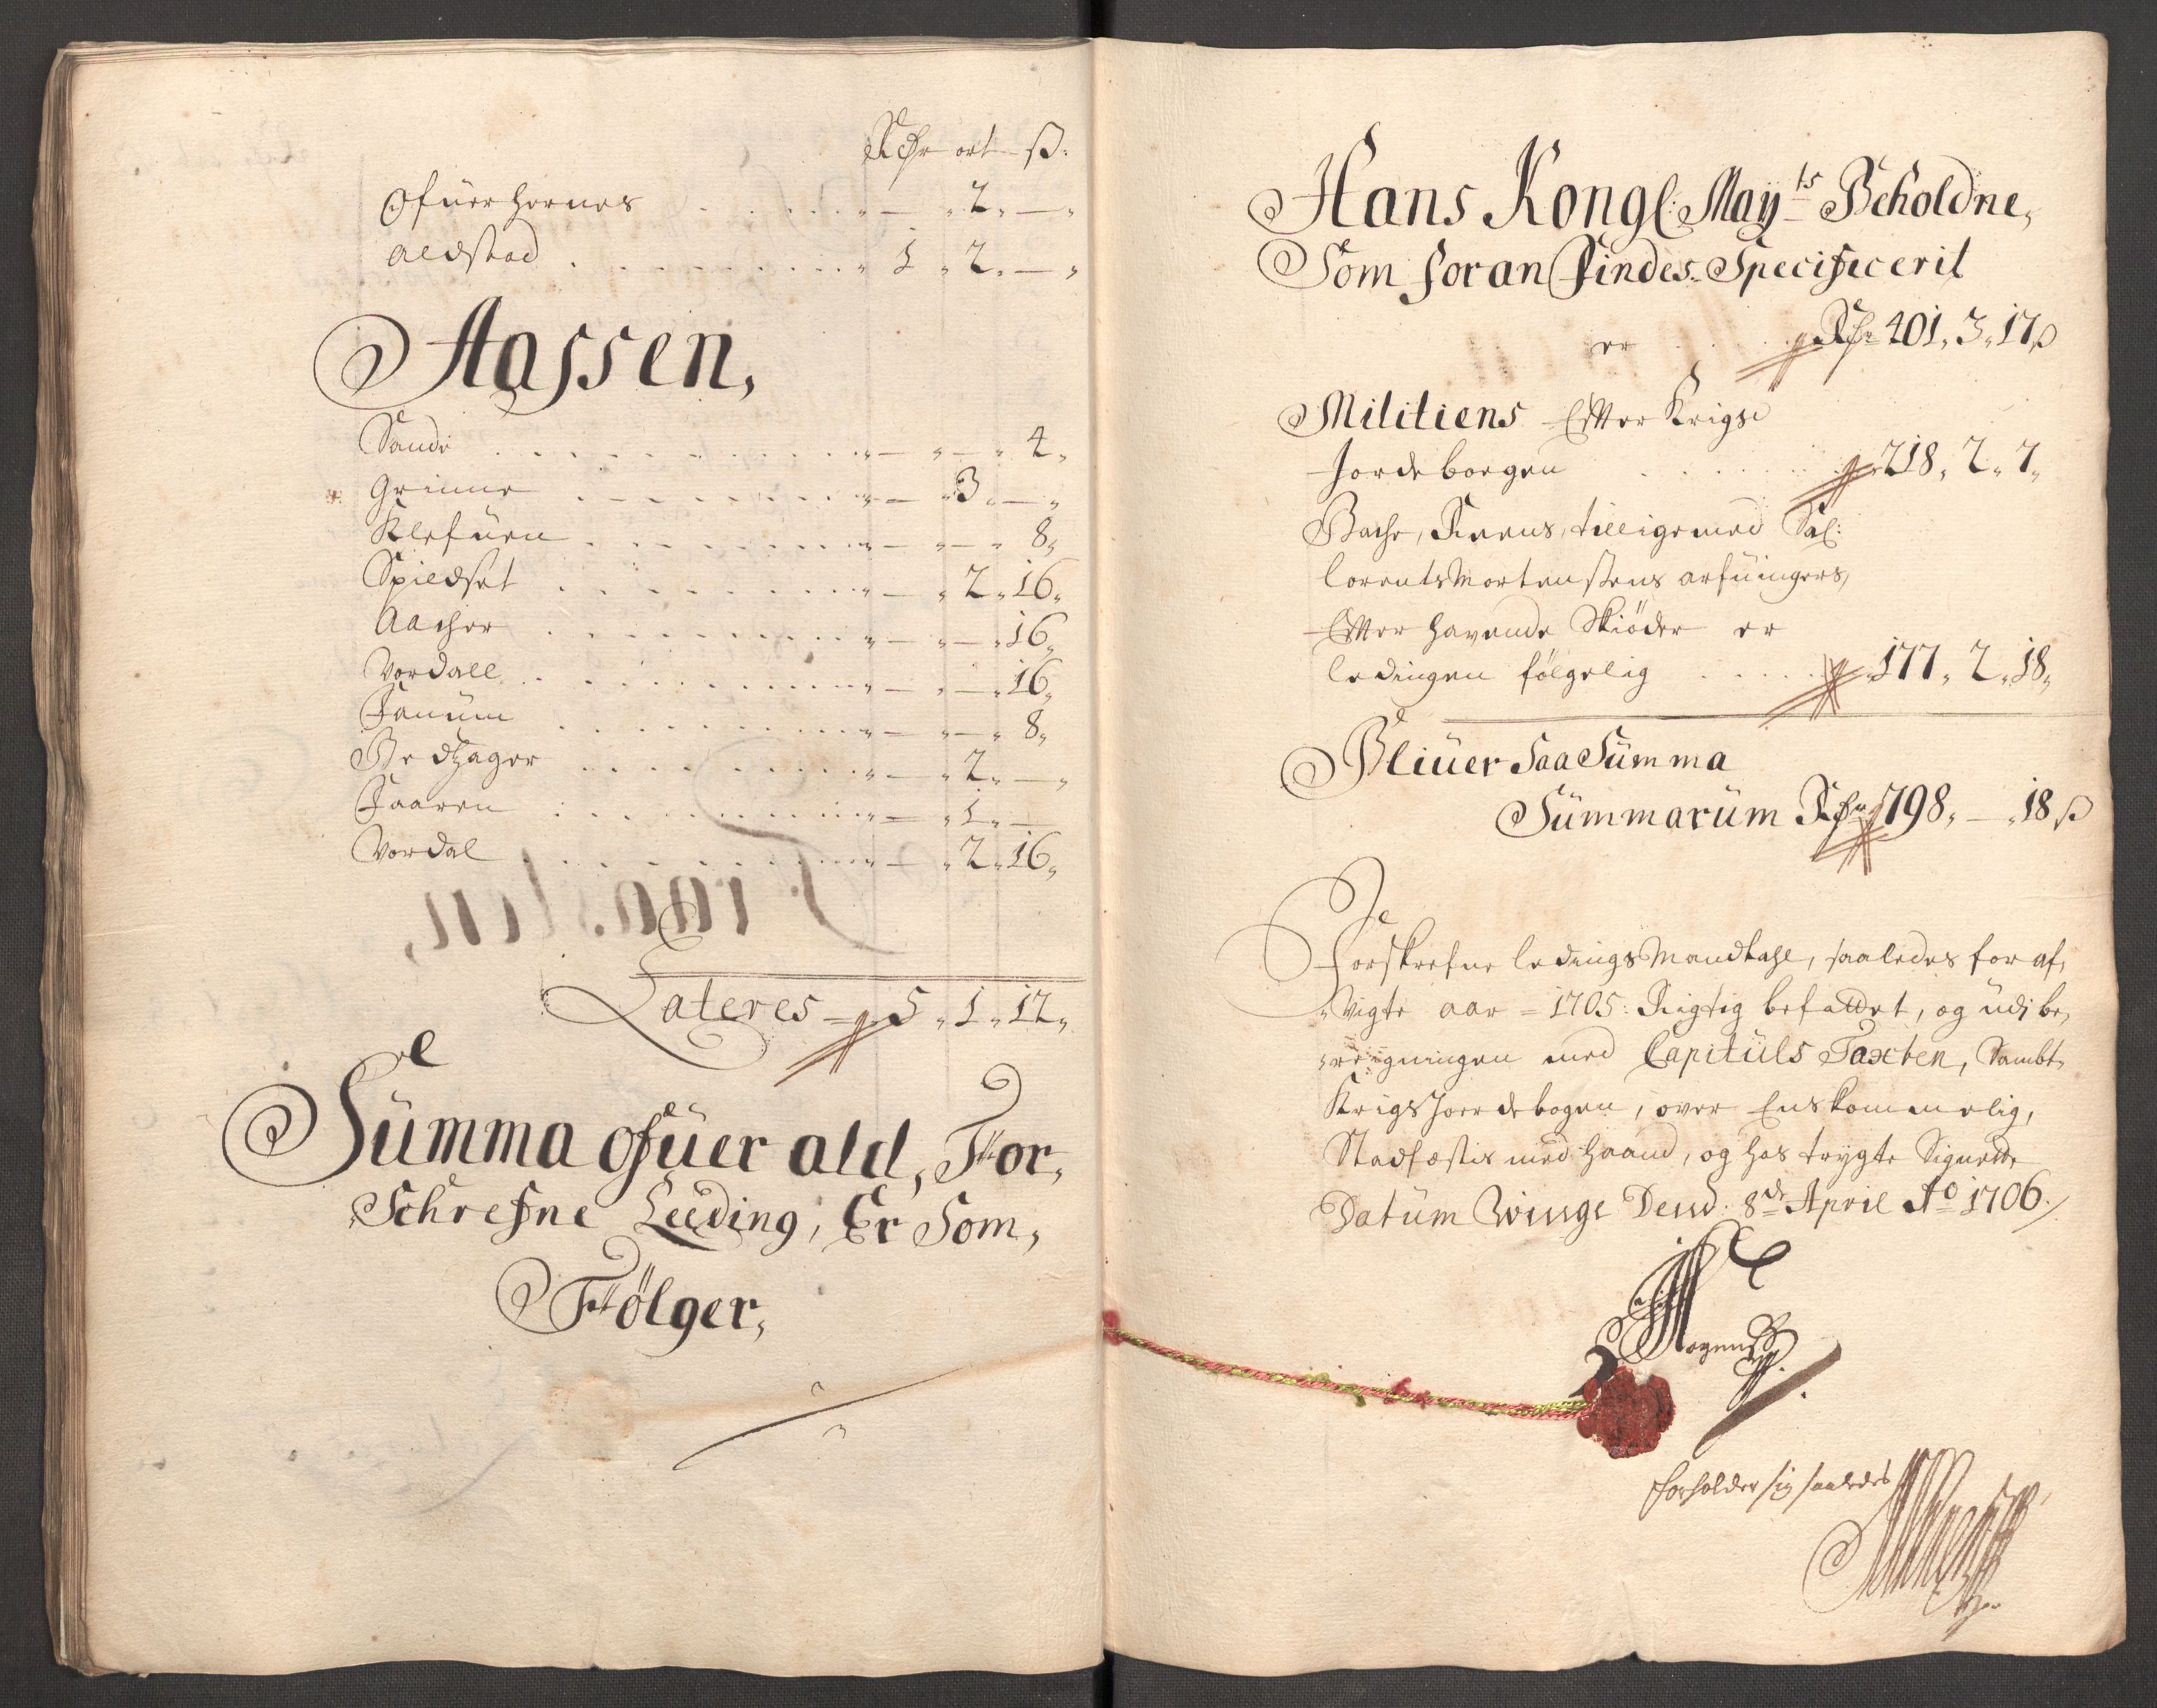 Rdr ort ß.
Ofüerhernes . . . . „ — „ 2. — „
Aldstad . . . . „ 1 „ 2. — „
Aassen,
Sande . . . . „ — „ — „ 4„
Grinne . . . . „ — „ 3„ — „
Klefüen . . . . „ — „ — „ 8„
Spieldset . . . . „ — „ 2„ 16„
Aacher . . . . „ — „ — „ 16„
Vordall . . . . „ — „ — „ 16„
Fanüm . . . . „ — „ — „ 8„
. . . . „ — „ 2„ — „
Faaren . . . . „ — „ 1„ —
Vordal . . . . „ — „ 2„ 16„
Lateres — 5 „ 1 „ 12„
Summa ofüer ald, For,
Schrefne Leeding, Er Som,
Fölger,
Hans Kongl: Mayts Beholdne,
Som foran Findes Specificerit
er . . . Rdr 401, 3, 17 ß
Militiens Efter Krigs
Jordebogen . . . . 218, 2, 7,
Bache, Rerens, tilligemed Sal:
Lorents Mortensens arfüingers,
Efter havende Skiöder er
ledingen fölgelig . . . . 177, 2, 18,
Bliüer Saa Summa
Summarüm Rdr 798, — „ 18 ß
Forskrefne ledings Mandtahl, saaledes for af„
„vigte aar = 1705: Rigtig befattet, og üdj be„
„regningen med Capitüls Taxten, Sambt
Krigs Joerdebogen, over Enskommelig,
Stadfæstis med haand, og hos trygte Signette
Datüm Winge Dend: 8de April Ao 1706./
Forholder sig saaledes